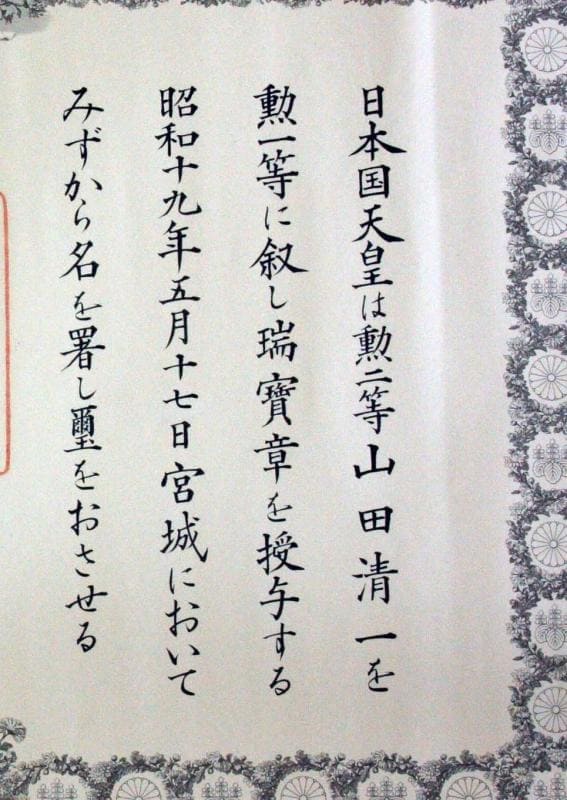 日本国天皇は勲二等山田清一を
勲一等に叙し瑞寶章を授与する
昭和十九年五月十七日宮城において
みずから名を署し璽をおさせる